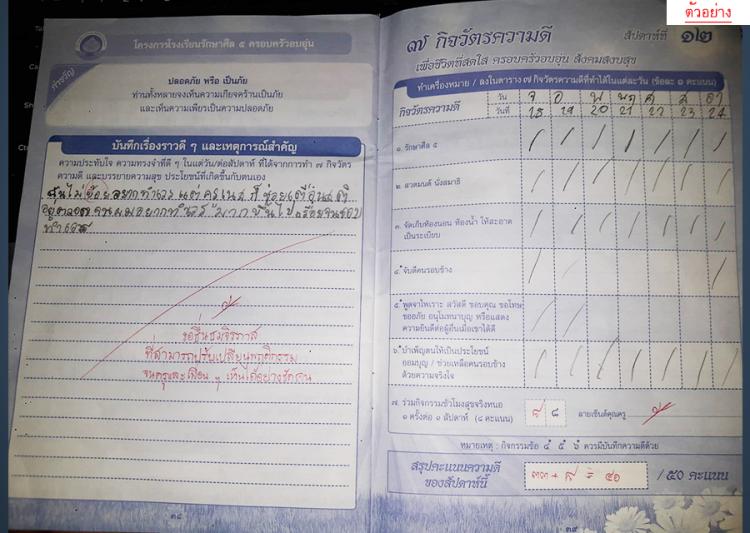 ตัวอย่าง
โครงการโรงเรียนรักษาศีล ๕ ครอบครัวอบอุ่น
คำขวัญ
ปลอดภัย หรือ เป็นภัย
ท่านทั้งหลายจงเห็นความเกียจคร้านเป็นภัย
และเห็นความเพียรเป็นความปลอดภัย
บันทึกเรื่องราวดี ๆ และเหตุการณ์สำคัญ
ความประทับใจ ความทรงจำที่ดี ๆ ในแต่ละวัน/ต่อสัปดาห์ ที่ได้จากการทำ ๗ กิจวัตร
ความดี และบรรยายความสุข ประโยชน์ที่เกิดขึ้นกับตนเอง
ขอชื่นชม
ที่สามารถปรับเปลี่ยนพฤติกรรม
จนครูและเพื่อน ๆ เห็นได้อย่างชัดเจน
๓๘
๗ กิจวัตรความดี สัปดาห์ที่ ๑๒
เพื่อชีวิตที่สดใส ครอบครัวอบอุ่น สังคมสงบสุข
ทำเครื่องหมาย / ลงในตาราง ๗ กิจวัตรความดีที่ทำได้ในแต่ละวัน (ข้อละ ๑ คะแนน)
กิจวัตรความดี วัน จ อ พ พฤ ศ ส อา
วันที่ 18 19 20 21 22 23 24
๑. รักษาศีล ๕ / / / / / / /
๒. สวดมนต์ นั่งสมาธิ / / / / / / /
๓. จัดเก็บห้องนอน ห้องน้ำ ให้สะอาด
เป็นระเบียบ / / / / / / /
๔. จับดีคนรอบข้าง / / /
๕. พูดจาไพเราะ สวัสดี ขอบคุณ ขอโทษ
ขออภัย อนุโมทนาบุญ หรือแสดง
ความยินดีต่อผู้อื่นเมื่อเขาได้ดี / /
๖. บำเพ็ญตนให้เป็นประโยชน์
ออมบุญ / ช่วยเหลือคนรอบข้าง
ด้วยความจริงใจ / / / / / / /
๗. ร่วมกิจกรรมชั่วโมงสุขจริงหนอ
๑ ครั้งต่อ ๑ สัปดาห์ (๘ คะแนน) ๘ ๘ ลายเซ็นต์คุณครู
หมายเหตุ : กิจกรรมข้อ ๔ ๕ ๖ ควรมีบันทึกความดีด้วย
สรุปคะแนนความดี
ของสัปดาห์นี้ ๓๓ + ๘ = ๔๑ / ๕๐ คะแนน
๓๙